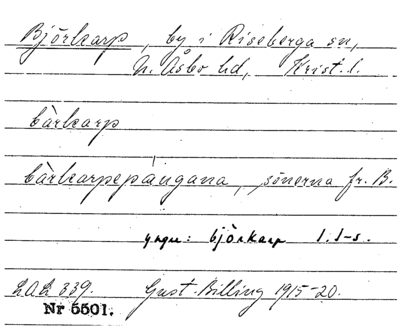 Björkarp, by i Riseberga sn,
N. Åsbo hd, Krist. l.
bàrkarp
bàrkarpepágana, sönerna fr. B.
yngre: björkarp l. l-s.
LAL 339. Gust. Billing 1915-20.
Nr 5501.